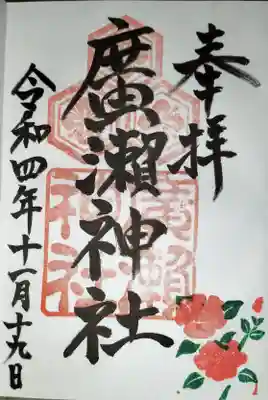 奉拝
廣瀬神社
令和四年十一月十九日
廣瀬
神社